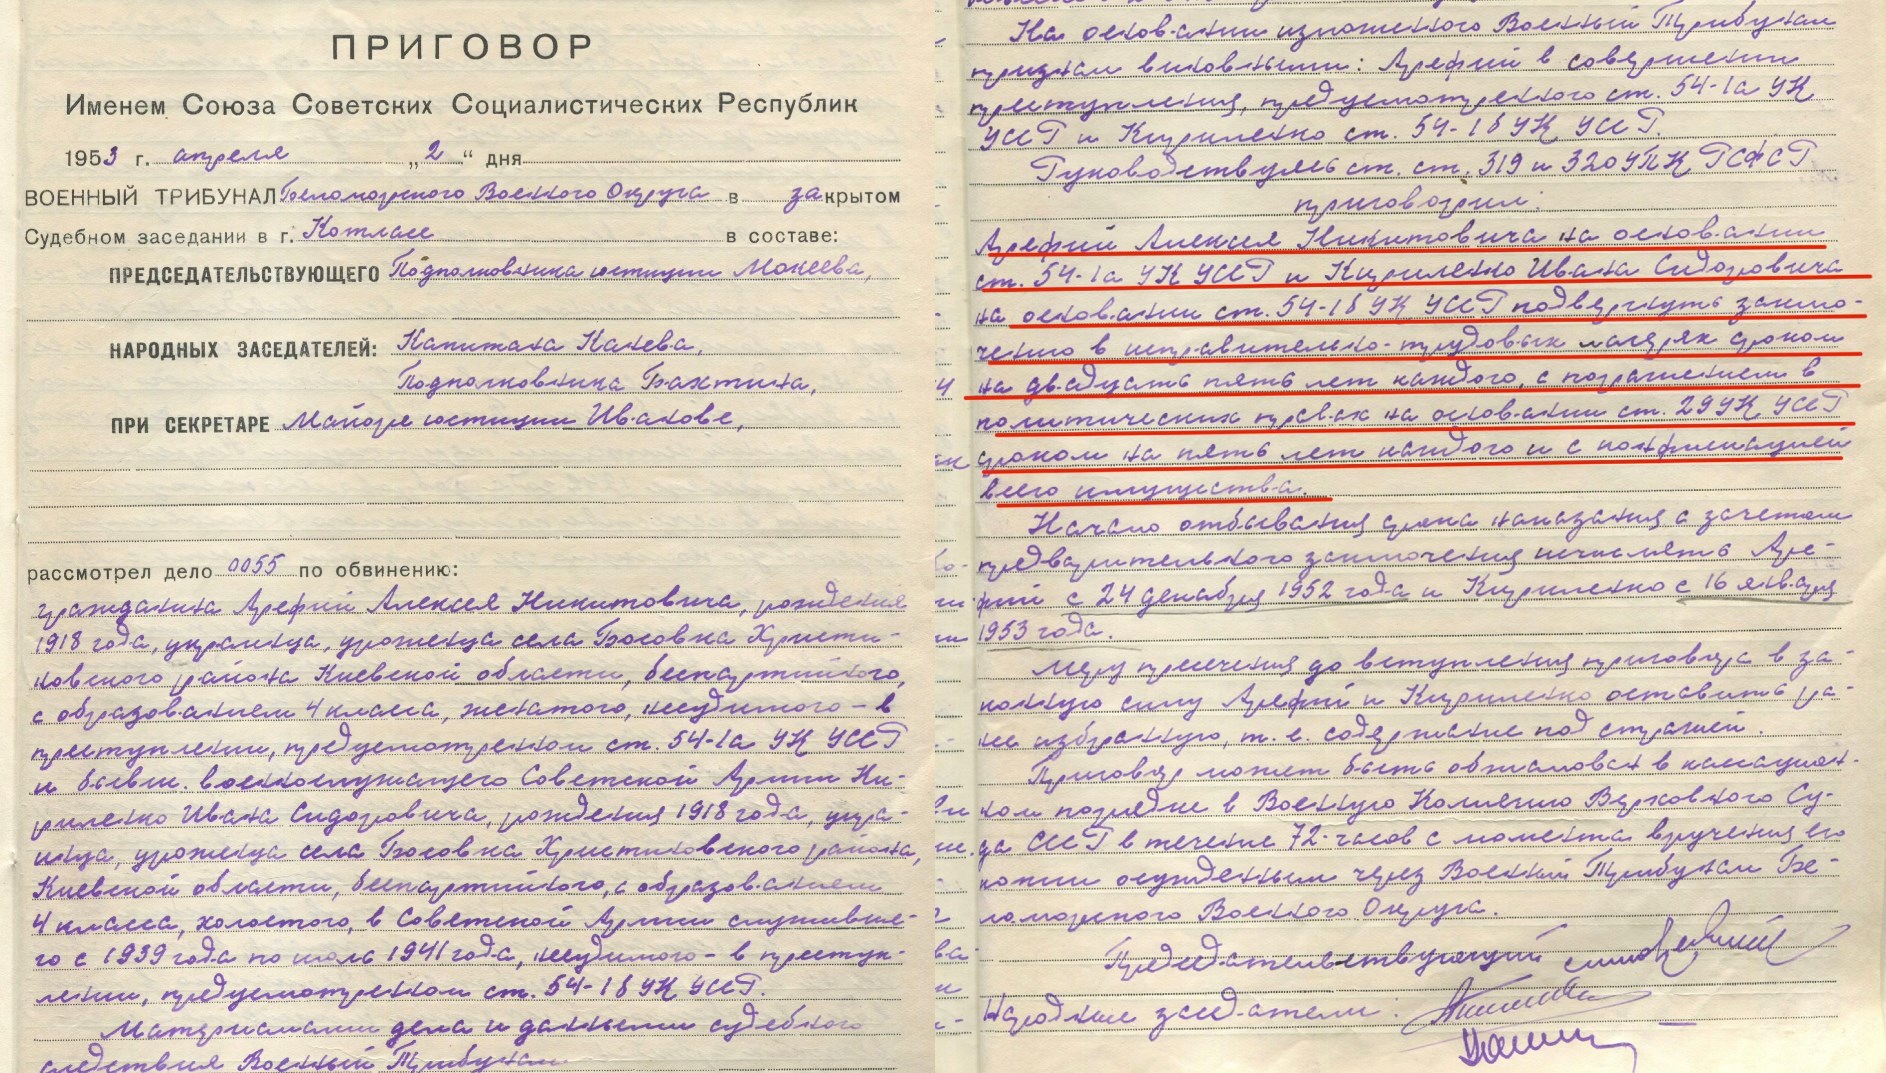 ПРИГОВОР
Именем Союза Советских Социалистических Республик
1953 г. апреля „2“ дня
ВОЕННЫЙ ТРИБУНАЛ Беломорского Военного Округа в закрытом
Судебном заседании в г. Котласе в составе:
ПРЕДСЕДАТЕЛЬСТВУЮЩЕГО Подполковника юстиции Мокеева,
НАРОДНЫХ ЗАСЕДАТЕЛЕЙ: Капитана Канева,
Подполковника Бахтина,
ПРИ СЕКРЕТАРЕ Майоре юстиции Иванове,
рассмотрел дело 0055 по обвинению:
гражданина Арефий Алексея Никитовича, рождения
1918 года, украинца, уроженца села Босовка Христи-
новского района Киевской области, беспартийного,
с образованием 4 класса, женатого, несудимого – в
преступлении, предусмотренном ст. 54-1а УК УССР
и бывш. военнослужащего Советской Армии Ки-
риленко Ивана Сидоровича, рождения 1918 года, укра-
инца, уроженца села Босовка Христиновского района,
Киевской области, беспартийного, с образованием
4 класса, холостого, в Советской Армии служивше-
го с 1939 года по июль 1941 года, несудимого – в преступ-
лении, предусмотренном ст. 54-1б УК УССР.
Материалами дела и данными судебного
следствия Военный Трибунал
На основании изложенного Военный Трибунал
признал виновными: Арефий в совершении
преступления, предусмотренного ст. 54-1а УК
УССР и Кириленко ст. 54-1б УК УССР.
Руководствуясь ст. ст. 319 и 320 УПК РСФСР
приговорил:
Арефий Алексея Никитовича на основании
ст. 54-1а УК УССР и Кириленко Ивана Сидоровича
на основании ст. 54-1б УК УССР подвергнуть заклю-
чению в исправительно-трудовых лагерях сроком
на двадцать пять лет каждого, с поражением в
политических правах на основании ст. 29 УК УССР
сроком на пять лет каждого и с конфискацией
всего имущества.
Начало отбывания срока наказания с зачетом
предварительного заключения исчислять Аре-
фий с 24 декабря 1952 года и Кириленко с 16 января
1953 года.
Меру пресечения до вступления приговора в за-
конную силу Арефий и Кириленко оставить ра-
нее избранную, т. е. содержание под стражей.
Приговор может быть обжалован в кассацион-
ном порядке в Военную Коллегию Верховного Су-
да СССР в течение 72-часов с момента вручения его
копии осужденным через Военный Трибунал Бе-
ломорского Военного Округа.
Председательствующий
Народные заседатели: